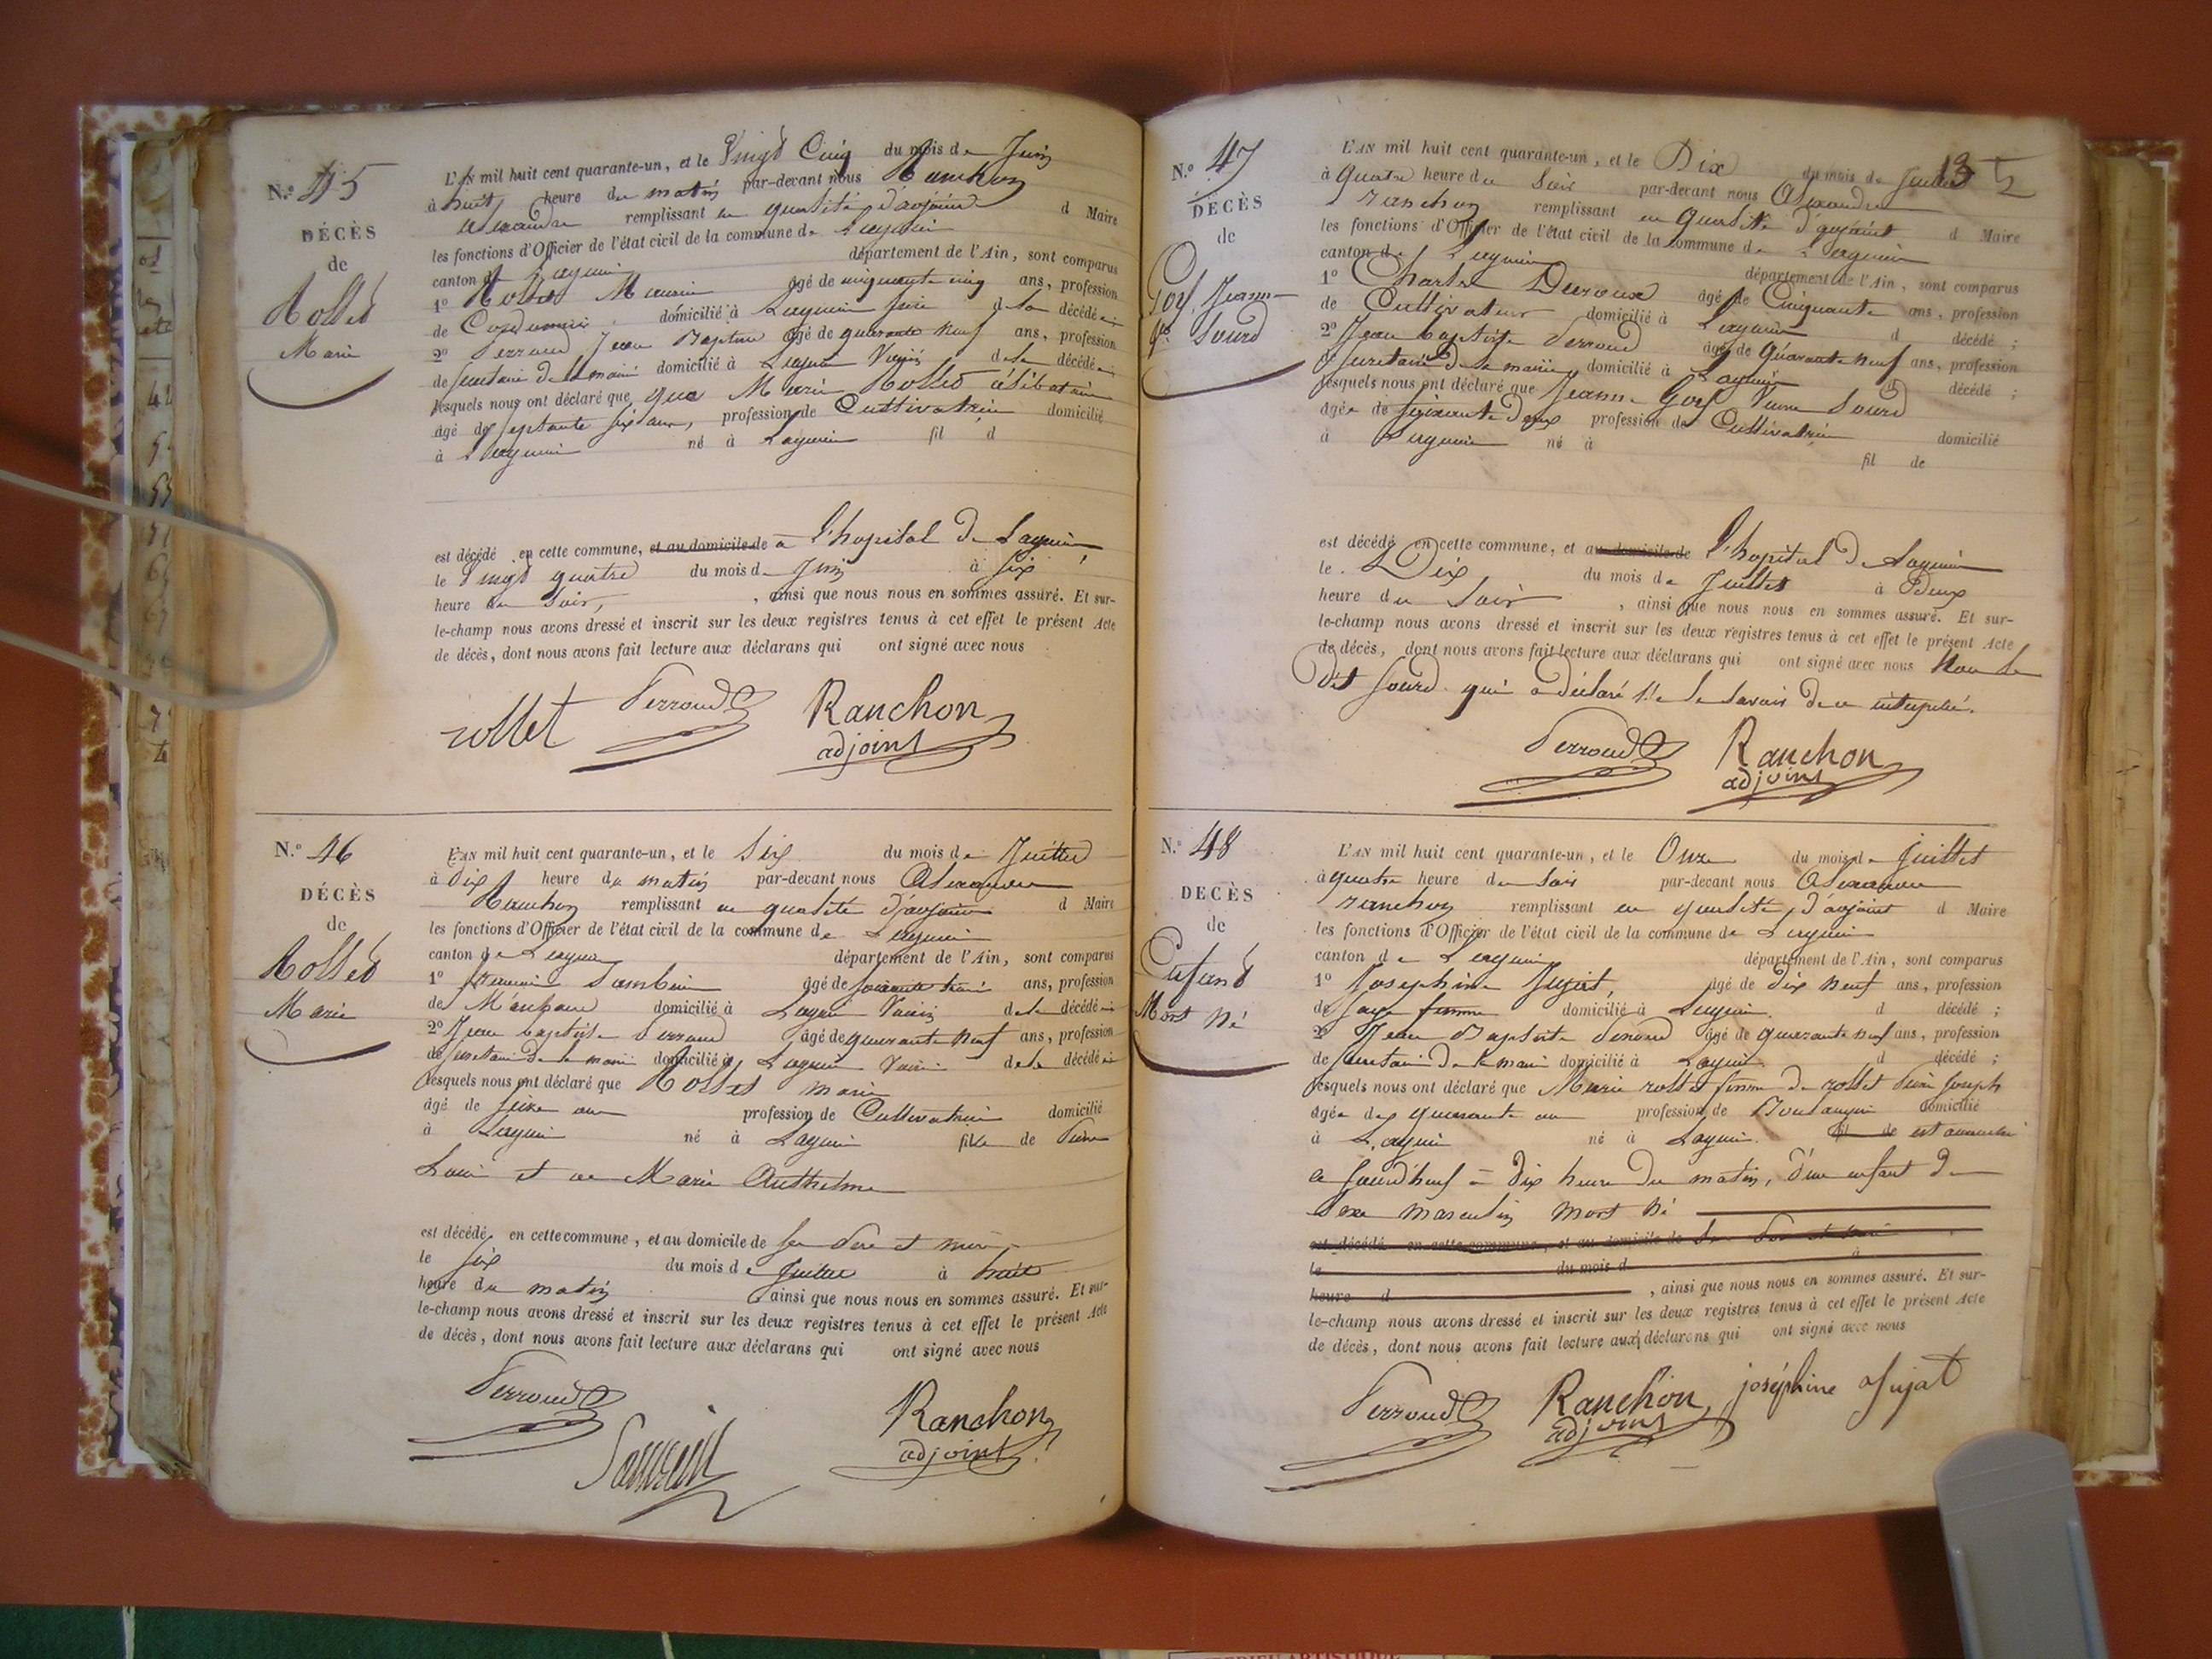 N.º 45
DÉCÈS
de
Rollet
Marie
L'AN mil huit cent quarante-un, et le Vingt Cinq du mois de Juin
à huit heure du matin par-devant nous Ranchon
Alexandre remplissant en qualité d'adjoint d Maire
les fonctions d'Officier de l'état civil de la commune de Lagnieu
canton de Lagnieu département de l'Ain, sont comparus
1º Rollet âgé de cinquante cinq ans, profession
de Cordonnier domicilié à Lagnieu de la décédée
2º Perroud Jean Baptiste âgé de quarante neuf ans, profession
de secretaire de la mairie domicilié à Lagnieu Voisin de la décédée
lesquels nous ont déclaré que Marie Rollet célibataire
âgé de septante six ans, profession de Cultivatrice domicilié
à Lagnieu né à Lagnieu fil d
est décédé en cette commune, et au domicile de à l'hopital de Lagnieu
le Vingt quatre du mois de Juin à six
heure du soir, , ainsi que nous nous en sommes assuré. Et sur-
le-champ nous avons dressé et inscrit sur les deux registres tenus à cet effet le présent Acte
de décès, dont nous avons fait lecture aux déclarans qui ont signé avec nous
rollet Perroud Ranchon
adjoint
N.º 46
DÉCÈS
de
Rollet
Marie
L'AN mil huit cent quarante-un, et le Six du mois de Juillet
à dix heure du matin par-devant nous Alexandre
Ranchon remplissant en qualité d'adjoint d Maire
les fonctions d'Officier de l'état civil de la commune de Lagnieu
canton de Lagnieu département de l'Ain, sont comparus
1º âgé de soixante ans, profession
de domicilié à Lagnieu Voisin de la décédée
2º Jean baptiste Perroud âgé de quarante neuf ans, profession
de secretaire de la mairie domicilié à Lagnieu Voisin de la décédée
lesquels nous ont déclaré que Rollet marie
âgé de seize ans profession de Cultivatrice domicilié
à Lagnieu né à Lagnieu fille de
Louis et de Marie Anthelme
est décédé en cette commune, et au domicile de ses Père et mère,
le six du mois de Juillet à huit
heure du matin ainsi que nous nous en sommes assuré. Et sur-
le-champ nous avons dressé et inscrit sur les deux registres tenus à cet effet le présent Acte
de décès, dont nous avons fait lecture aux déclarans qui ont signé avec nous
Perroud
Ranchon
adjoint
N.º 47
DÉCÈS
de
Goy Jeanne
Ve Sourd
L'AN mil huit cent quarante-un, et le Dix du mois de Juillet
à quatre heure du Soir par-devant nous Alexandre
ranchon remplissant en qualité d'adjoint d Maire
les fonctions d'Officier de l'état civil de la commune de Lagnieu
canton de Lagnieu département de l'Ain, sont comparus
1º Charles âgé de Cinquante ans, profession
de Cultivateur domicilié à Lagnieu d décédé ;
2º Jean baptiste Perroud âgé de quarante neuf ans, profession
de secretaire de la mairie domicilié à Lagnieu d décédé ;
lesquels nous ont déclaré que Jeanne Goy Veuve Sourd
âgée de soixante deux profession de Cultivatrice domicilié
à Lagnieu né à fil de
est décédé en cette commune, et au domicile de l'hopital de Lagnieu
le Dix du mois de Juillet à Deux
heure du Soir , ainsi que nous nous en sommes assuré. Et sur-
le-champ nous avons dressé et inscrit sur les deux registres tenus à cet effet le présent Acte
de décès, dont nous avons fait lecture aux déclarans qui ont signé avec nous Non le
dit sourd qui a déclaré ne le savoir de ce interpellé.
Perroud Ranchon
adjoint
N.º 48
DÉCÈS
de
Enfant
Mort Né
L'AN mil huit cent quarante-un, et le Onze du mois de Juillet
à quatre heure du soir par-devant nous Alexandre
ranchon remplissant en qualité d'adjoint d Maire
les fonctions d'Officier de l'état civil de la commune de Lagnieu
canton de Lagnieu département de l'Ain, sont comparus
1º Josephine Jujat, âgé de dix neuf ans, profession
de sage femme domicilié à Lagnieu. d décédé ;
2º Jean Baptiste Perroud âgé de quarante neuf ans, profession
de secretaire de la mairie domicilié à Lagnieu d décédé ;
lesquels nous ont déclaré que Marie rollet femme de rollet Joseph
âgée de quarante ans profession de Boulangère domicilié
à Lagnieu né à Lagnieu. fil de est accouchée
ce jourd'hui à dix heure du matin, d'un enfant de
Sexe masculin mort né
est décédé en cette commune, et au domicile de
le du mois d à
heure d , ainsi que nous nous en sommes assuré. Et sur-
le-champ nous avons dressé et inscrit sur les deux registres tenus à cet effet le présent Acte
de décès, dont nous avons fait lecture aux déclarans qui ont signé avec nous
Perroud Ranchon joséphine Jujat
adjoint